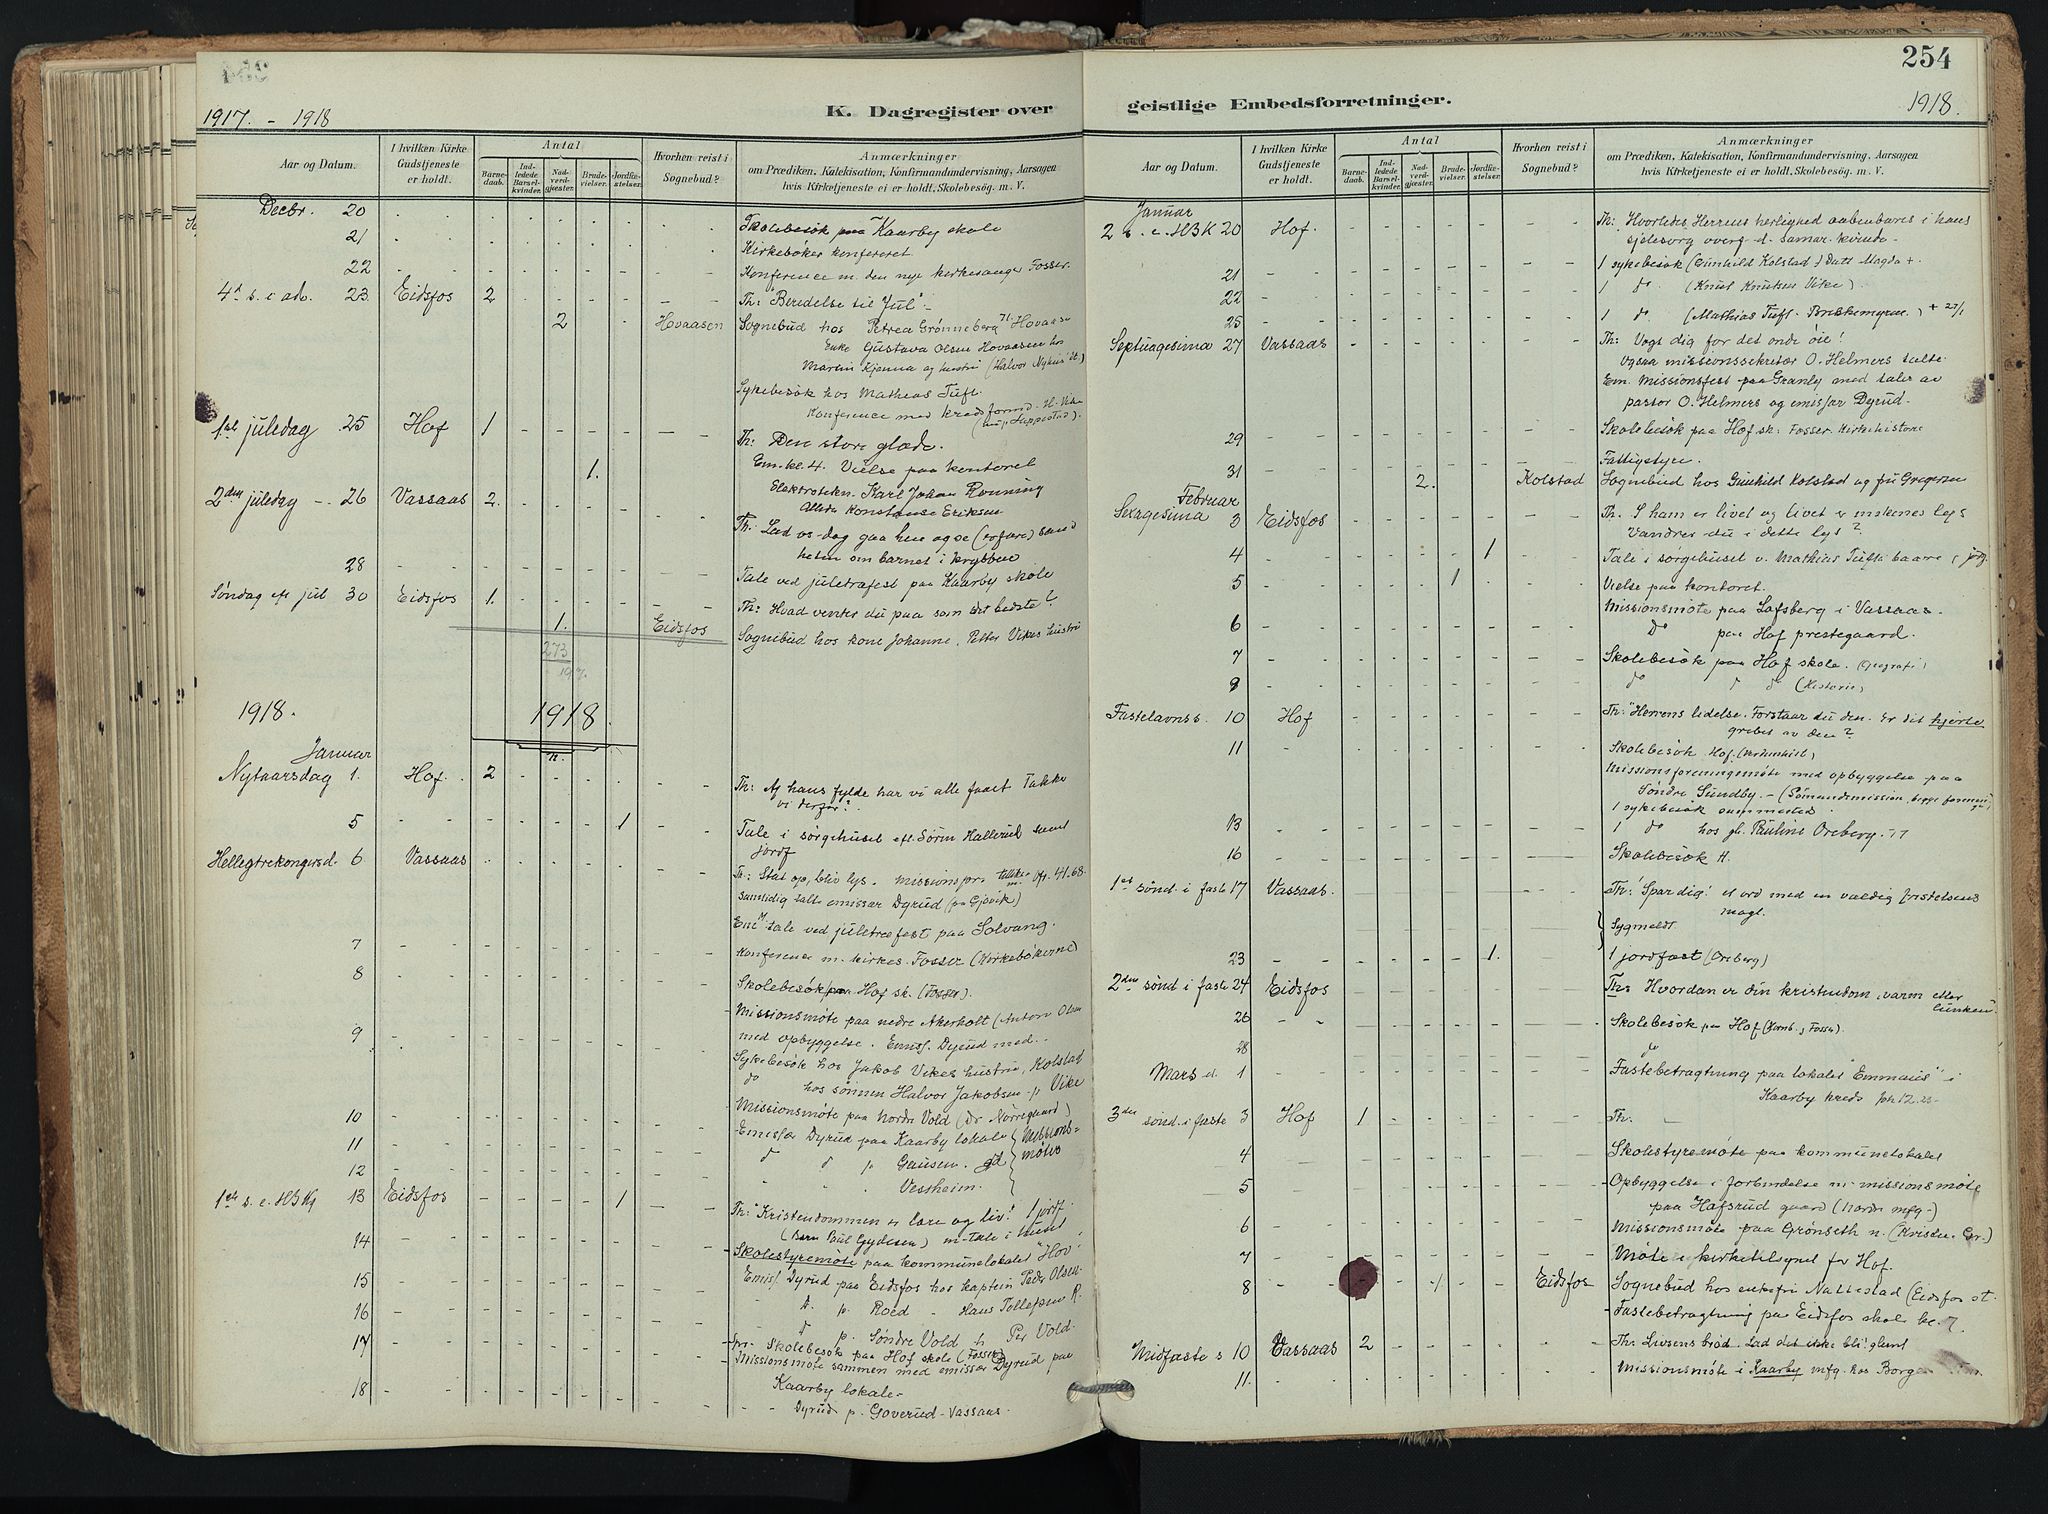 254
1917. - 1918
K. Dagregister over
Aar og Datum.
I hvilken Kirke Gudstjeneste er holdt.
Antal
Barnedaab.
Indledede Barselkvinder.
Nadverdgjester.
Brudevielser.
Jordfæstelser.
Hvorhen reist i Sognebud?
Anmærkninger
om Prædiken, Katekisation, Konfirmandundervisning, Aarsagen
hvis Kirketjeneste ei er holdt, Skolebesøg. m. V.
Decbr. 20 Skolebesök paa Kaarby skole
21 Kirkebøker konfereret
22 Konference m. den nye kirkesanger Fosser.
4d s. i adv. 23. Eidsfos 2 Th: "Beredelse til Jul" -
2 Hovaasen Sognebud hos Petrea Grønneberg Hovaasen
Enke Gustava Olsen Hovaasen hos
Martin Kjenna og hustru (Halvor
Sykebesök hos Mathias Tuft.
Konference med
1ste juledag 25 Hof 1 Th: Den store glæde.
1. Em. kl. 4. Vielse paa kontoret
2den juledag - 26 Vassaas 2. Elektrotekn. Karl Johan Rønning
Konstanse Eriksen
Th: Lad os -dag gaa hen og se (erfare)
heten om barnet i krybben
28 Tale ved juletræfest paa Kaarby skole
Søndag eft jul 30 Eidsfos 1. Th: Hvad venter du paa som det bedste?
1. Eidsfos Sognebud hos kone Johanne, Petter Vikes hustru
273
1917.
1918. 1918.
Januar
Nytaarsdag 1. Hof. 2 Th: Af hans fylde har vi alle faaet Takke
vi derfor?
5 1 Tale i sørgehuset eft. Sörin Hallerud samt
jordf
Hellegtrekongersd. 6 Vassaas Th: Staa op, bliv lys. missionspr. Op. 41.68.
samtidig talte emissær Dyrud (paa Gjøvik)
tale ved juletræfest paa Solvang.
7 Konference m. kirkes. Fosser (Kirkebökerne)
8 Skolebesök paa Hof sk. (Fosser).
Missionsmöte paa nedre Akerholt (Anton Olsen
9 med opbyggelse. Emiss. Dyrud med.
Sykebesök hos Jakob Vikes hustru, Kolstad
do hos sønnen Halvor Jakobsen p Vike
10 Missionsmöte paa Nordre Vold (Nörregaard)
11 Emissær Dyrud paa Kaarby lokale Missions-
12 p Gausen. möter
Vestheim.
1ste s. e. H3K 13 Eidsfos 1 Th: "Kristendommen er lære og liv! 1 jordf.
14 (Barn Paul Gydesen) m. Tale i huset
Skolestyremöte paa kommunelokalet "Hov"
15 Emiss. Dyrud paa Eidsfos hos kaptein Peder Olsen.
16 p. Roed - Hans Tollefsen R.
17 p. Søndre Vold h Per Vold.
Skolebesök paa Hof skole (Fosser)
Missionsmöte sammen med emissær Dyrud paa
18 Kaarby lokale-
Dyrud p. Goverud-Vassaas.
geistlige Embedsforretninger.
1918.
Aar og Datum.
I hvilken Kirke Gudstjeneste er holdt.
Antal
Barnedaab.
Indledede Barselkvinder.
Nadverdgjester.
Brudevielser.
Jordfæstelser.
Hvorhen reist i Sognebud?
Anmærkninger
om Prædiken, Katekisation, Konfirmandundervisning, Aarsagen
hvis Kirketjeneste ei er holdt, Skolebesøg. m. V.
Januar
2 s. e. H3K 20 Hof. Th: Hvorledes Herrens herlighed aabenbares i hans
sjelesorg overf. d. samar. kvinde-
21 1 sykebesök (Gunhild Kolstad) Datt Magda +.
22 1 do (Knut Knutsen Vike)
25 1 do (Mathias Tuft. ) + 27/1
Septuagesima 27 Vassaas Th: Vogt dig for det onde öie!
Ogsaa missionssekretær O. Helmers talte
Em. Missionsfest paa Granly med taler av
pastor O. Helmers og emissær Dyrud.
29 Skolebesök paa Hof sk: Fosser. Kirkehistorie
31 Fattigstyre.
2. Kolstad Sognebud hos Gunhild Kolstad og fru Gregersen
Februar
Sexagesima 3 Eidsfos Th. I ham er livet og livet er mskenes lys
Vandrer du i dette lys?
4 1 Tale i sørgehuset v. Mathias Tufts baare
5 1 Vielse paa kontoret.
Missionsmöte paa Lofsberg i Vassaas.
6 do paa Hof prestegaard.
7 Skolebesök paa Hof skole. (Geografi)
9 do (Historie)
Fastelavnss. 10 Hof Th: "Herrens lidelse. Forstaar du den. Er dit hjerte
grebet av den?
11 Skolebesök Hof.
Missionsforeningsmöte med opbyggelse paa
Søndre Sundby. - (Sömandsmission,
1 sykebesök sammested
13 1 do hos gl. Pauline Oreberg.
16 Skolebesök H.
1ste sönd. i faste 17 Vassaas. Th: "Spar dig!" et ord med en vældig fristelsens
magt.
Sygmeldt
23 1. 1 jordfæst (Oreberg)
2den sönd i faste 24 Eidsfos Th: Hvordan er din kristendom, varm eller
lunken?
26 Skolebesök paa Hof (Fosser).
28 do
Mars d. 1 Fastebetragtning paa lokalet "Emmaus" i
Kaarby kreds
3die sönd. i faste 3 Hof 1 Th.
4 Skolestyremöte paa kommunelokalet
5 Opbyggelse i forbindelse m. missionsmöte
paa Hafsrud gaard (Nordre mfg-)
6 Missionsmöte paa Grönseth n.
7 Möte i kirketilsynet for Hof.
8 1 Eidsfos Sognebud hos enkefru Nattestad (Eidsfos st.
Fastebetragtning paa Eidsfos skole kl. 7.
Midfaste s 10 Vassaas 2 Th: Livsens bröd. Lad det ikke bli glemt
11. Missionsmöte i Kaarby mfg. hos Borge